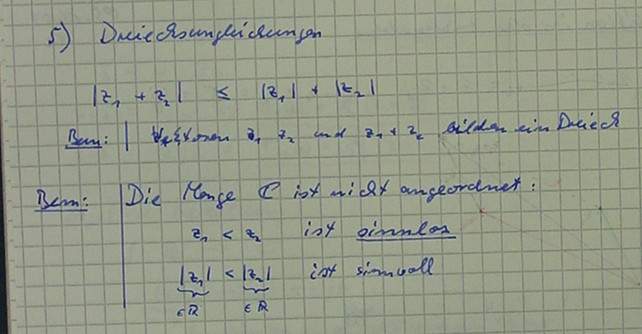 5) Dreiecksungleichungen
|z₁ + z₂| ≤ |z₁| + |z₂|
Bem: | Vektoren z₁ z₂ und z₁ + z₂ bilden ein Dreieck
Bem: | Die Menge ℂ ist nicht angeordnet:
z₁ < z₂ ist sinnlos
|z₁| < |z₂| ist sinnvoll
∈ℝ ∈ℝ